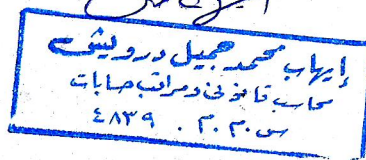 إيهاب محمد جميل درويش
محاسب قانونى ومراقب حسابات
س.م.م. ٤٨٣٩